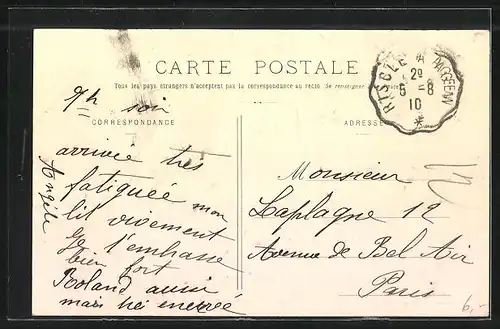 CARTE POSTALE
Tous les pays étrangers n'acceptent pas la correspondance au recto (Se renseigner
CORRESPONDANCE
ADRESSE
RISCLE
2º
5-8
10
9h soir
arrivée très
fatiguée mon
lit vivement
Je t'embrasse
bien fort
Roland aussi
mais très énervé
Angèle
Monsieur
Laplagne 12
Avenue de Bel Air
Paris
12
6,-